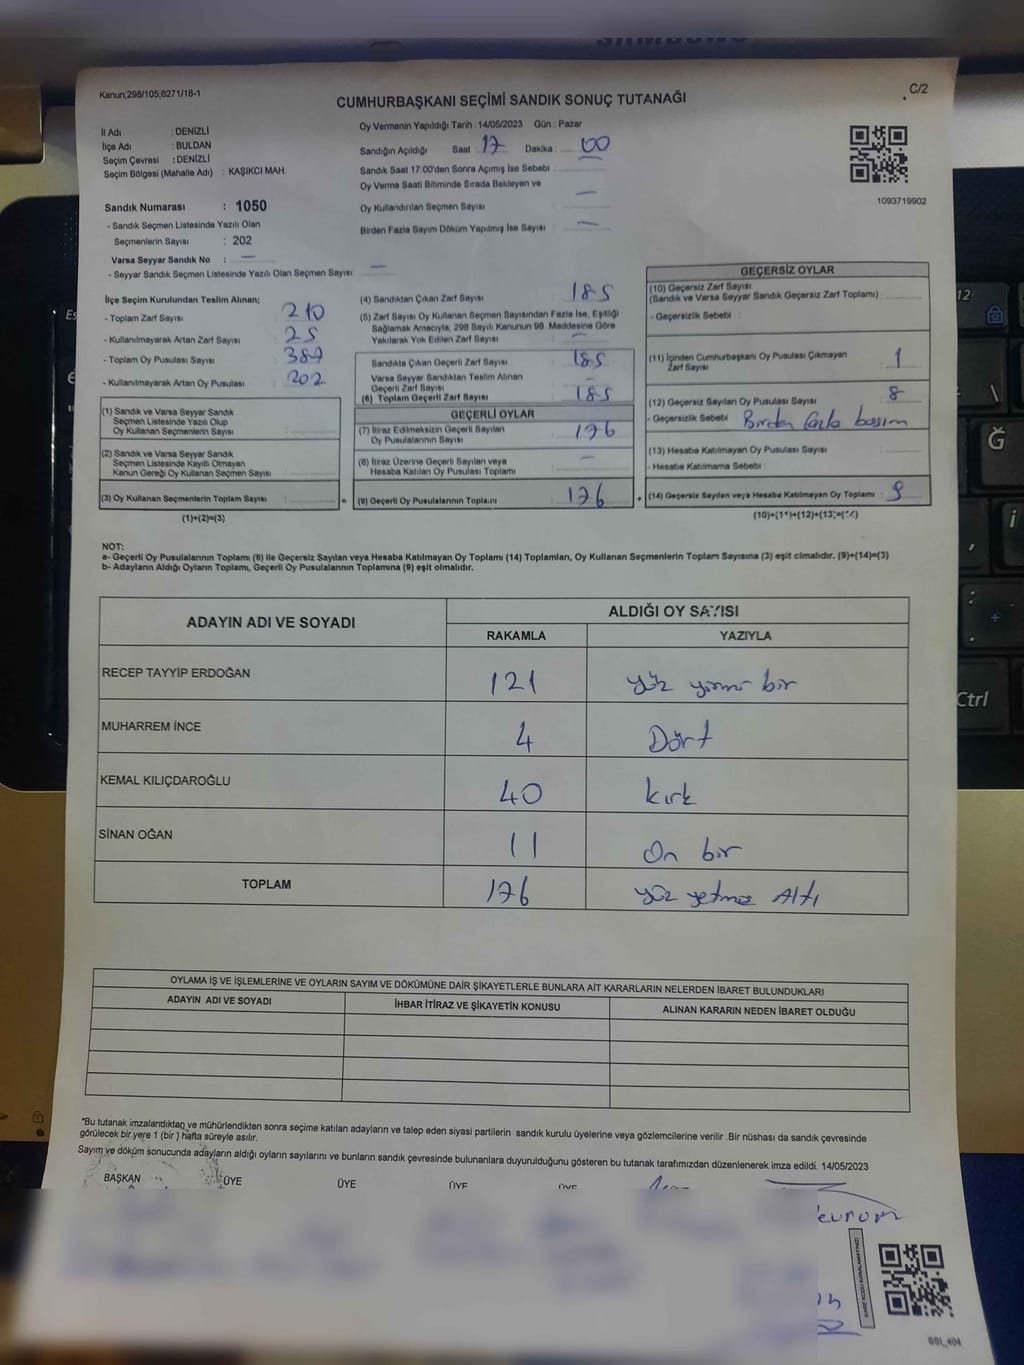 SAMSUNG
Kanun;298/105,6271/18-1
C/2
CUMHURBAŞKANI SEÇİMİ SANDIK SONUÇ TUTANAĞI
İl Adı : DENİZLİ
İlçe Adı : BULDAN
Seçim Çevresi : DENİZLİ
Seçim Bölgesi (Mahalle Adı) : KAŞIKCI MAH.
Oy Vermenin Yapıldığı Tarih 14/05/2023 Gün : Pazar
Sandığın Açıldığı Saat : 17 Dakika : 00
Sandık Saat 17:00'den Sonra Açımış İse Sebebi :
Oy Verme Saati Bitiminde Sırada Bekleyen ve
Oy Kullandırılan Seçmen Sayısı : —
Birden Fazla Sayım Döküm Yapılmış İse Sayısı : —
1093719902
Sandık Numarası : 1050
- Sandık Seçmen Listesinde Yazılı Olan
Seçmenlerin Sayısı : 202
Varsa Seyyar Sandık No : —
- Seyyar Sandık Seçmen Listesinde Yazılı Olan Seçmen Sayısı : —
İlçe Seçim Kurulundan Teslim Alınan;
- Toplam Zarf Sayısı : 210
- Kullanılmayarak Artan Zarf Sayısı : 25
- Toplam Oy Pusulası Sayısı : 387
- Kullanılmayarak Artan Oy Pusulası : 202
(1) Sandık ve Varsa Seyyar Sandık
Seçmen Listesinde Yazılı Olup
Oy Kullanan Seçmenlerin Sayısı :
(2) Sandık ve Varsa Seyyar Sandık
Seçmen Listesinde Kayıtlı Olmayan
Kanun Gereği Oy Kullanan Seçmen Sayısı :
(3) Oy Kullanan Seçmenlerin Toplam Sayısı : =
(1)+(2)=(3)
(4) Sandıktan Çıkan Zarf Sayısı : 185
(5) Zarf Sayısı Oy Kullanan Seçmen Sayısından Fazla İse, Eşitliği
Sağlamak Amacıyla, 298 Sayılı Kanunun 98. Maddesine Göre
Yakılarak Yok Edilen Zarf Sayısı : —
Sandıkta Çıkan Geçerli Zarf Sayısı : 185
Varsa Seyyar Sandıktan Teslim Alınan
Geçerli Zarf Sayısı : —
(6) Toplam Geçerli Zarf Sayısı : 185
GEÇERLİ OYLAR
(7) İtiraz Edilmeksizin Geçerli Sayılan
Oy Pusulalarının Sayısı : 176
(8) İtiraz Üzerine Geçerli Sayılan veya
Hesaba Katılan Oy Pusulası Toplamı : —
(9) Geçerli Oy Pusulalarının Toplamı : 176 +
GEÇERSİZ OYLAR
(10) Geçersiz Zarf Sayısı
(Sandık ve Varsa Seyyar Sandık Geçersiz Zarf Toplamı) :
- Geçersizlik Sebebi :
(11) İçinden Cumhurbaşkanı Oy Pusulası Çıkmayan
Zarf Sayısı : 1
(12) Geçersiz Sayılan Oy Pusulası Sayısı : 8
- Geçersizlik Sebebi : Birden fazla basım
(13) Hesaba Katılmayan Oy Pusulası Sayısı :
- Hesaba Katılmama Sebebi :
(14) Geçersiz Sayılan veya Hesaba Katılmayan Oy Toplamı : 9
(10)+(11)+(12)+(13)=(14)
NOT:
a- Geçerli Oy Pusulalarının Toplamı (9) ile Geçersiz Sayılan veya Hesaba Katılmayan Oy Toplamı (14) Toplamları, Oy Kullanan Seçmenlerin Toplam Sayısına (3) eşit olmalıdır. (9)+(14)=(3)
b- Adayların Aldığı Oyların Toplamı, Geçerli Oy Pusulalarının Toplamına (9) eşit olmalıdır.
ADAYIN ADI VE SOYADI ALDIĞI OY SAYISI
RAKAMLA YAZIYLA
RECEP TAYYİP ERDOĞAN 121 yüz yirmi bir
MUHARREM İNCE 4 Dört
KEMAL KILIÇDAROĞLU 40 kırk
SİNAN OĞAN 11 On bir
TOPLAM 176 yüz yetmiş Altı
OYLAMA İŞ VE İŞLEMLERİNE VE OYLARIN SAYIM VE DÖKÜMÜNE DAİR ŞİKAYETLERLE BUNLARA AİT KARARLARIN NELERDEN İBARET BULUNDUKLARI
ADAYIN ADI VE SOYADI İHBAR İTİRAZ VE ŞİKAYETİN KONUSU ALINAN KARARIN NEDEN İBARET OLDUĞU
*Bu tutanak imzalandıktan ve mühürlendikten sonra seçime katılan adayların ve talep eden siyasi partilerin sandık kurulu üyelerine veya gözlemcilerine verilir .Bir nüshası da sandık çevresinde
görülecek bir yere 1 (bir ) hafta süreyle asılır.
Sayım ve döküm sonucunda adayların aldığı oyların sayılarını ve bunların sandık çevresinde bulunanlara duyurulduğunu gösteren bu tutanak tarafımızdan düzenlenerek imza edildi. 14/05/2023
BAŞKAN ÜYE ÜYE ÜYE ÜYE
KARE KODU KARALAMAYINIZ!
12
Ğ
Ctrl